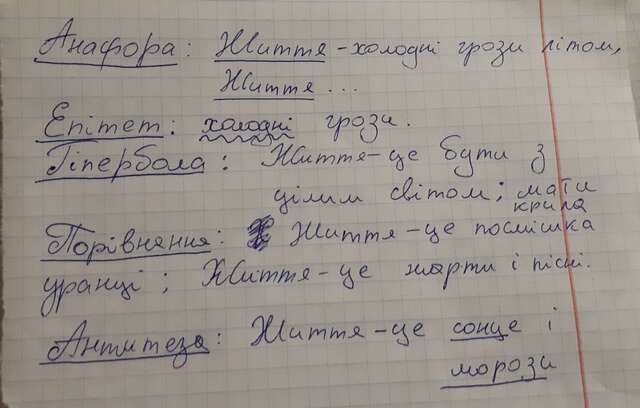 Анафора: Життя - холодні грози літом,
Життя ...
Епітет: холодні грози.
Гіпербола: Життя - це бути з
цілим світом; мати
крила
Порівняння: Життя - це посмішка
уранці; Життя - це жарти і пісні.
Антитеза: Життя - це сонце і
морози